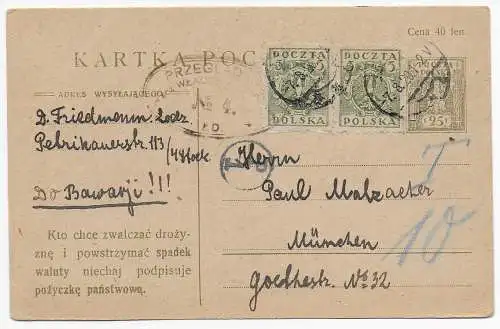 Cena 40 fen.
KARTKA POC
POCZTA POCZTA
5 5
POLSKA POLSKA
25
PRZEGL
ADRES WYSYŁAJĄCEGO
D. Friedmann. Lodz
Petrikauerstr. 113
Do Bawarji!!!
Kto chce zwalczać droży-
znę i powstrzymać spadek
waluty niechaj podpisuje
pożyczkę państwową.
T
Herrn
Paul Malzacher
München
Goethestr. No 32
T
10